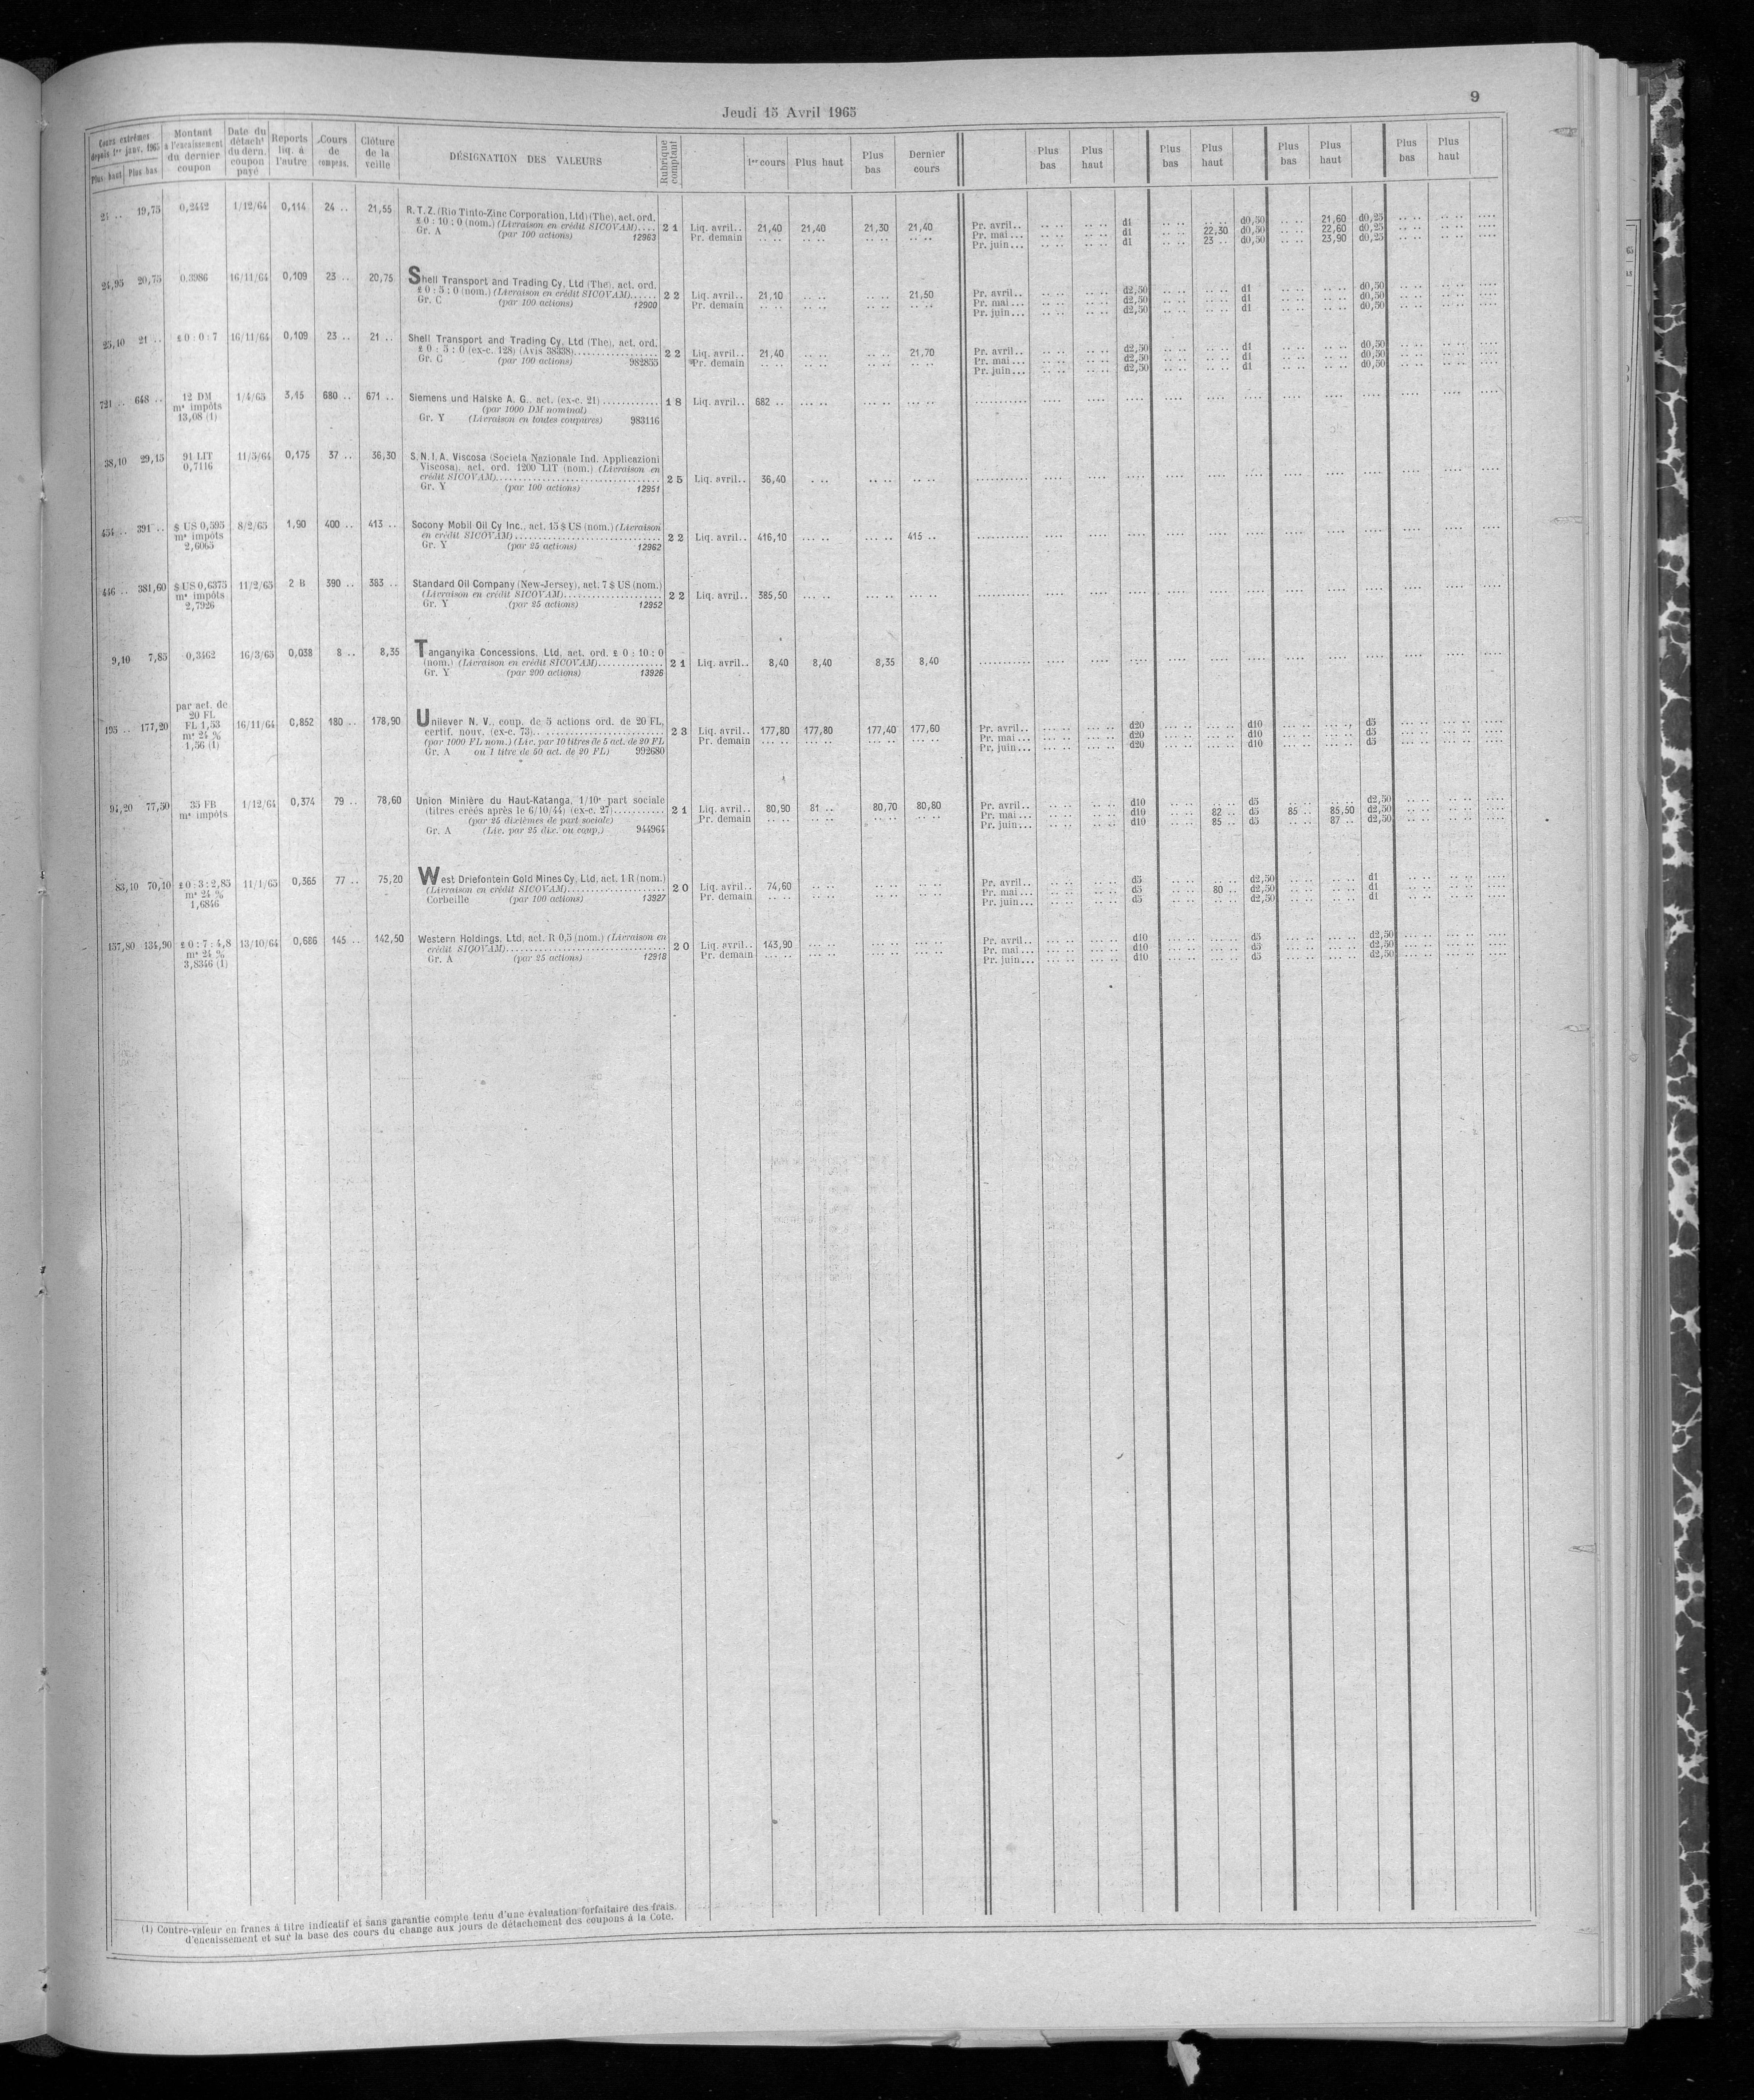 9
Jeudi 15 Avril 1965
Cours extrêmes depuis 1er janv. 1965 Plus haut Plus bas
Montant à l'encaissement du dernier coupon
Date du détacht du dern. coupon payé
Reports liq. à l'autre
Cours de compens.
Clôture de la veille
DÉSIGNATION DES VALEURS
Rubrique comptant
1er cours Plus haut Plus bas Dernier cours
Plus bas Plus haut Plus bas Plus haut Plus bas Plus haut Plus bas Plus haut
24 .. 19,75 0,2442 1/12/64 0,114 24 .. 21,55 R. T. Z. (Rio Tinto-Zinc Corporation, Ltd) (The), act. ord.
£ 0 : 10 : 0 (nom.) (Livraison en crédit SICOVAM).... 2 1 Liq. avril.. 21,40 21,40 21,30 21,40 Pr. avril.. .. .. .. .. d1 .. .. .. .. d0,50 .. .. 21,60 d0,25 .. .. .. .. ....
Gr. A (par 100 actions) 12963 Pr. demain .. .. .. .. .. .. .. .. Pr. mai... .. .. .. .. d1 .. .. 22,30 d0,50 .. .. 22,60 d0,25 .. .. .. .. ....
Pr. juin... .. .. .. .. d1 .. .. 23 .. d0,50 .. .. 23,90 d0,25 .. .. .. .. ....
24,95 20,75 0,3986 16/11/64 0,109 23 .. 20,75 Shell Transport and Trading Cy, Ltd (The), act. ord.
£ 0 : 5 : 0 (nom.) (Livraison en crédit SICOVAM)...... 2 2 Liq. avril.. 21,10 .. .. .. .. 21,50 Pr. avril.. .. .. .. .. d2,50 .. .. .. .. d1 .. .. .. .. d0,50 .. .. .. .. ....
Gr. C (par 100 actions) 12900 Pr. demain .. .. .. .. .. .. .. .. Pr. mai... .. .. .. .. d2,50 .. .. .. .. d1 .. .. .. .. d0,50 .. .. .. .. ....
Pr. juin... .. .. .. .. d2,50 .. .. .. .. d1 .. .. .. .. d0,50 .. .. .. .. ....
25,10 21 .. £ 0 : 0 : 7 16/11/64 0,109 23 .. 21 .. Shell Transport and Trading Cy, Ltd (The), act. ord.
£ 0 : 5 : 0 (ex-c. 128) (Avis 38338)................. 2 2 Liq. avril.. 21,40 .. .. .. .. 21,70 Pr. avril.. .. .. .. .. d2,50 .. .. .. .. d1 .. .. .. .. d0,50 .. .. .. .. ....
Gr. C (par 100 actions) 982855 Pr. demain .. .. .. .. .. .. .. .. Pr. mai... .. .. .. .. d2,50 .. .. .. .. d1 .. .. .. .. d0,50 .. .. .. .. ....
Pr. juin... .. .. .. .. d2,50 .. .. .. .. d1 .. .. .. .. d0,50 .. .. .. .. ....
721 .. 648 .. 12 DM 1/4/65 3,15 680 .. 671 .. Siemens und Halske A. G., act. (ex-c. 21) ............ 1 8 Liq. avril.. 682 .. ... .. ... .. ... ..
ms impôts (par 1000 DM nominal)
13,08 (1) Gr. Y (Livraison en toutes coupures) 983116
38,10 29,15 91 LIT 11/5/64 0,175 37 .. 36,30 S. N. I. A. Viscosa (Societa Nazionale Ind. Applicazioni
0,7116 Viscosa), act. ord. 1200 LIT (nom.) (Livraison en
crédit SICOVAM)................................... 2 5 Liq. avril.. 36,40 .. .. .. .. .. ..
Gr. Y (par 100 actions) 12951
454 .. 391 .. $ US 0,595 8/2/65 1,90 400 .. 413 .. Socony Mobil Oil Cy Inc., act. 15 $ US (nom.) (Livraison
ms impôts en crédit SICOVAM)............................... 2 2 Liq. avril.. 416,10 ... .. ... .. 415 ..
2,6065 Gr. Y (par 25 actions) 12962
446 .. 381,60 $ US 0,6375 11/2/65 2 B 390 .. 383 .. Standard Oil Company (New-Jersey), act. 7 $ US (nom.)
ms impôts (Livraison en crédit SICOVAM)..................... 2 2 Liq. avril.. 385,50 ... .. ... .. ... ..
2,7926 Gr. Y (par 25 actions) 12952
9,10 7,85 0,3462 16/3/65 0,038 8 .. 8,35 Tanganyika Concessions, Ltd, act. ord. £ 0 : 10 : 0
(nom.) (Livraison en crédit SICOVAM).............. 2 1 Liq. avril.. 8,40 8,40 8,35 8,40
Gr. Y (par 200 actions) 13926
par act. de
20 FL
195 .. 177,20 FL 1,53 16/11/64 0,852 180 .. 178,90 Unilever N. V., coup. de 5 actions ord. de 20 FL,
ms 24 % certif. nouv. (ex-c. 73)............................ 2 3 Liq. avril.. 177,80 177,80 177,40 177,60 Pr. avril.. ... .. ... .. d20 ... .. ... .. d10 ... .. ... .. d5 ... .. ... .. ....
1,56 (1) (par 1000 FL nom.) (Liv. par 10 titres de 5 act. de 20 FL Pr. demain ... .. ... .. ... .. ... .. Pr. mai... ... .. ... .. d20 ... .. ... .. d10 ... .. ... .. d5 ... .. ... .. ....
Gr. A ou 1 titre de 50 act. de 20 FL) 992680 Pr. juin... ... .. ... .. d20 ... .. ... .. d10 ... .. ... .. d5 ... .. ... .. ....
94,20 77,50 35 FB 1/12/64 0,374 79 .. 78,60 Union Minière du Haut-Katanga, 1/10e part sociale
ms impôts (titres créés après le 6/10/44) (ex-c. 27)........... 2 1 Liq. avril.. 80,90 81 .. 80,70 80,80 Pr. avril.. .. .. .. .. d10 .. .. .. .. d5 .. .. .. .. d2,50 .. .. .. .. ....
(par 25 dixièmes de part sociale) Pr. demain .. .. .. .. .. .. .. .. Pr. mai... .. .. .. .. d10 .. .. 82 .. d5 85 .. 85,50 d2,50 .. .. .. .. ....
Gr. A (Liv. par 25 dix. ou coup.) 944964 Pr. juin... .. .. .. .. d10 .. .. 85 .. d5 .. .. 87 .. d2,50 .. .. .. .. ....
83,10 70,10 £ 0 : 3 : 2,85 11/1/65 0,365 77 .. 75,20 West Driefontein Gold Mines Cy, Ltd, act. 1 R (nom.)
ms 24 % (Livraison en crédit SICOVAM)..................... 2 0 Liq. avril.. 74,60 .. .. .. .. .. .. Pr. avril.. .. .. .. .. d5 .. .. .. .. d2,50 .. .. .. .. d1 .. .. .. .. ....
1,6846 Corbeille (par 100 actions) 13927 Pr. demain .. .. .. .. .. .. .. .. Pr. mai... .. .. .. .. d5 .. .. 80 .. d2,50 .. .. .. .. d1 .. .. .. .. ....
Pr. juin... .. .. .. .. d5 .. .. .. .. d2,50 .. .. .. .. d1 .. .. .. .. ....
157,80 134,90 £ 0 : 7 : 4,8 13/10/64 0,686 145 .. 142,50 Western Holdings, Ltd, act. R 0,5 (nom.) (Livraison en
ms 24 % crédit SICOVAM)................................... 2 0 Liq. avril.. 143,90 ... .. ... .. ... .. Pr. avril.. ... .. ... .. d10 ... .. ... .. d5 ... .. ... .. d2,50 ... .. ... .. ....
3,8346 (1) Gr. A (par 25 actions) 12918 Pr. demain ... .. ... .. ... .. ... .. Pr. mai... ... .. ... .. d10 ... .. ... .. d5 ... .. ... .. d2,50 ... .. ... .. ....
Pr. juin... ... .. ... .. d10 ... .. ... .. d5 ... .. ... .. d2,50 ... .. ... .. ....
(1) Contre-valeur en francs à titre indicatif et sans garantie compte tenu d'une évaluation forfaitaire des frais
d'encaissement et sur la base des cours du change aux jours de détachement des coupons à la Cote.